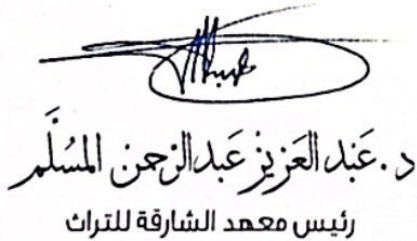 د. عَبد العَزيز عَبد الرّحمن المسُلَّم
رئيس معهد الشارقة للتراث